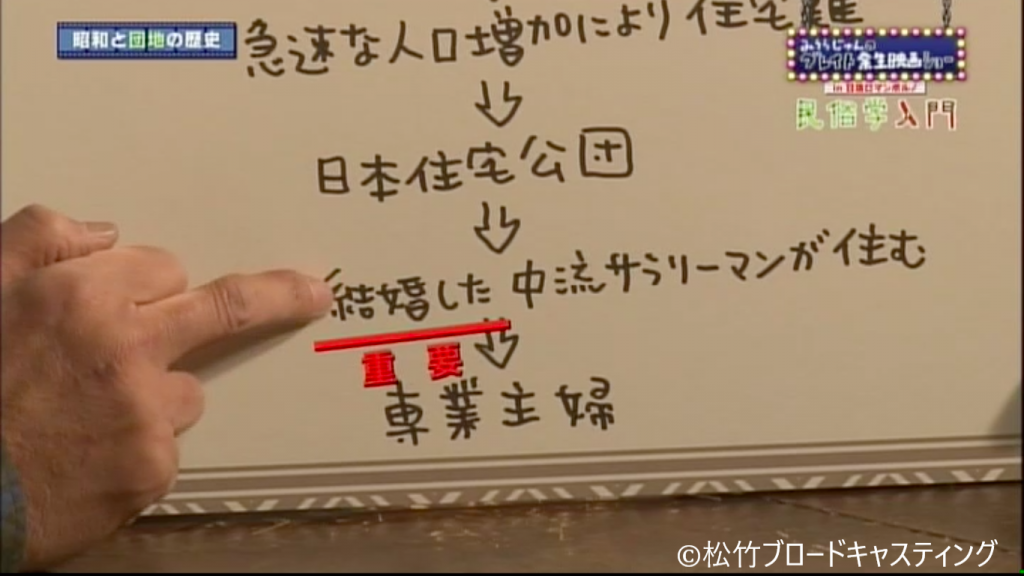 昭和と団地の歴史
急速な人口増加により住宅難
みうらじゅんの
グレイト余生映画ショー
in 日活ロマンポルノ
民俗学入門
↓
日本住宅公団
↓
結婚した中流サラリーマンが住む
↓
重要
専業主婦
©松竹ブロードキャスティング